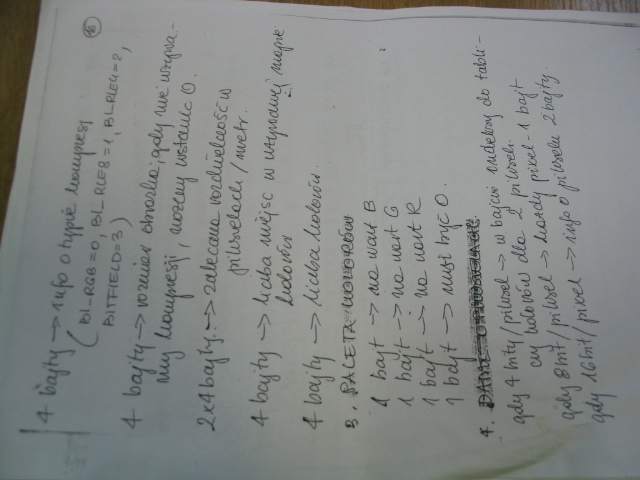 4 bajty → info o typie kompresji
(BI-RGB=0, BI-RLE8=1, BI-RLE4=2,
BITFIELD=3)
4 bajty → rozmiar obrazka; gdy nie używa-
my kompresji, możemy wstawić 0.
2x4 bajty → zalecana rozdzielczość w
pikselach/metr.
4 bajty → liczba miejsc w używanej mapie
kolorów
4 bajty → liczba kolorów.
3. PALETA KOLORÓW
1 bajt → na wart B
1 bajt → na wart G
1 bajt → na wart R
1 bajt → musi być 0.
4. DANE
gdy 4 bity/piksel → w bajcie indeksy do tabli-
cy kolorów dla 2 pikseli.
gdy 8bit/piksel → każdy piksel - 1 bajt
gdy 16bit/pixel → info o pikselu 2 bajty.